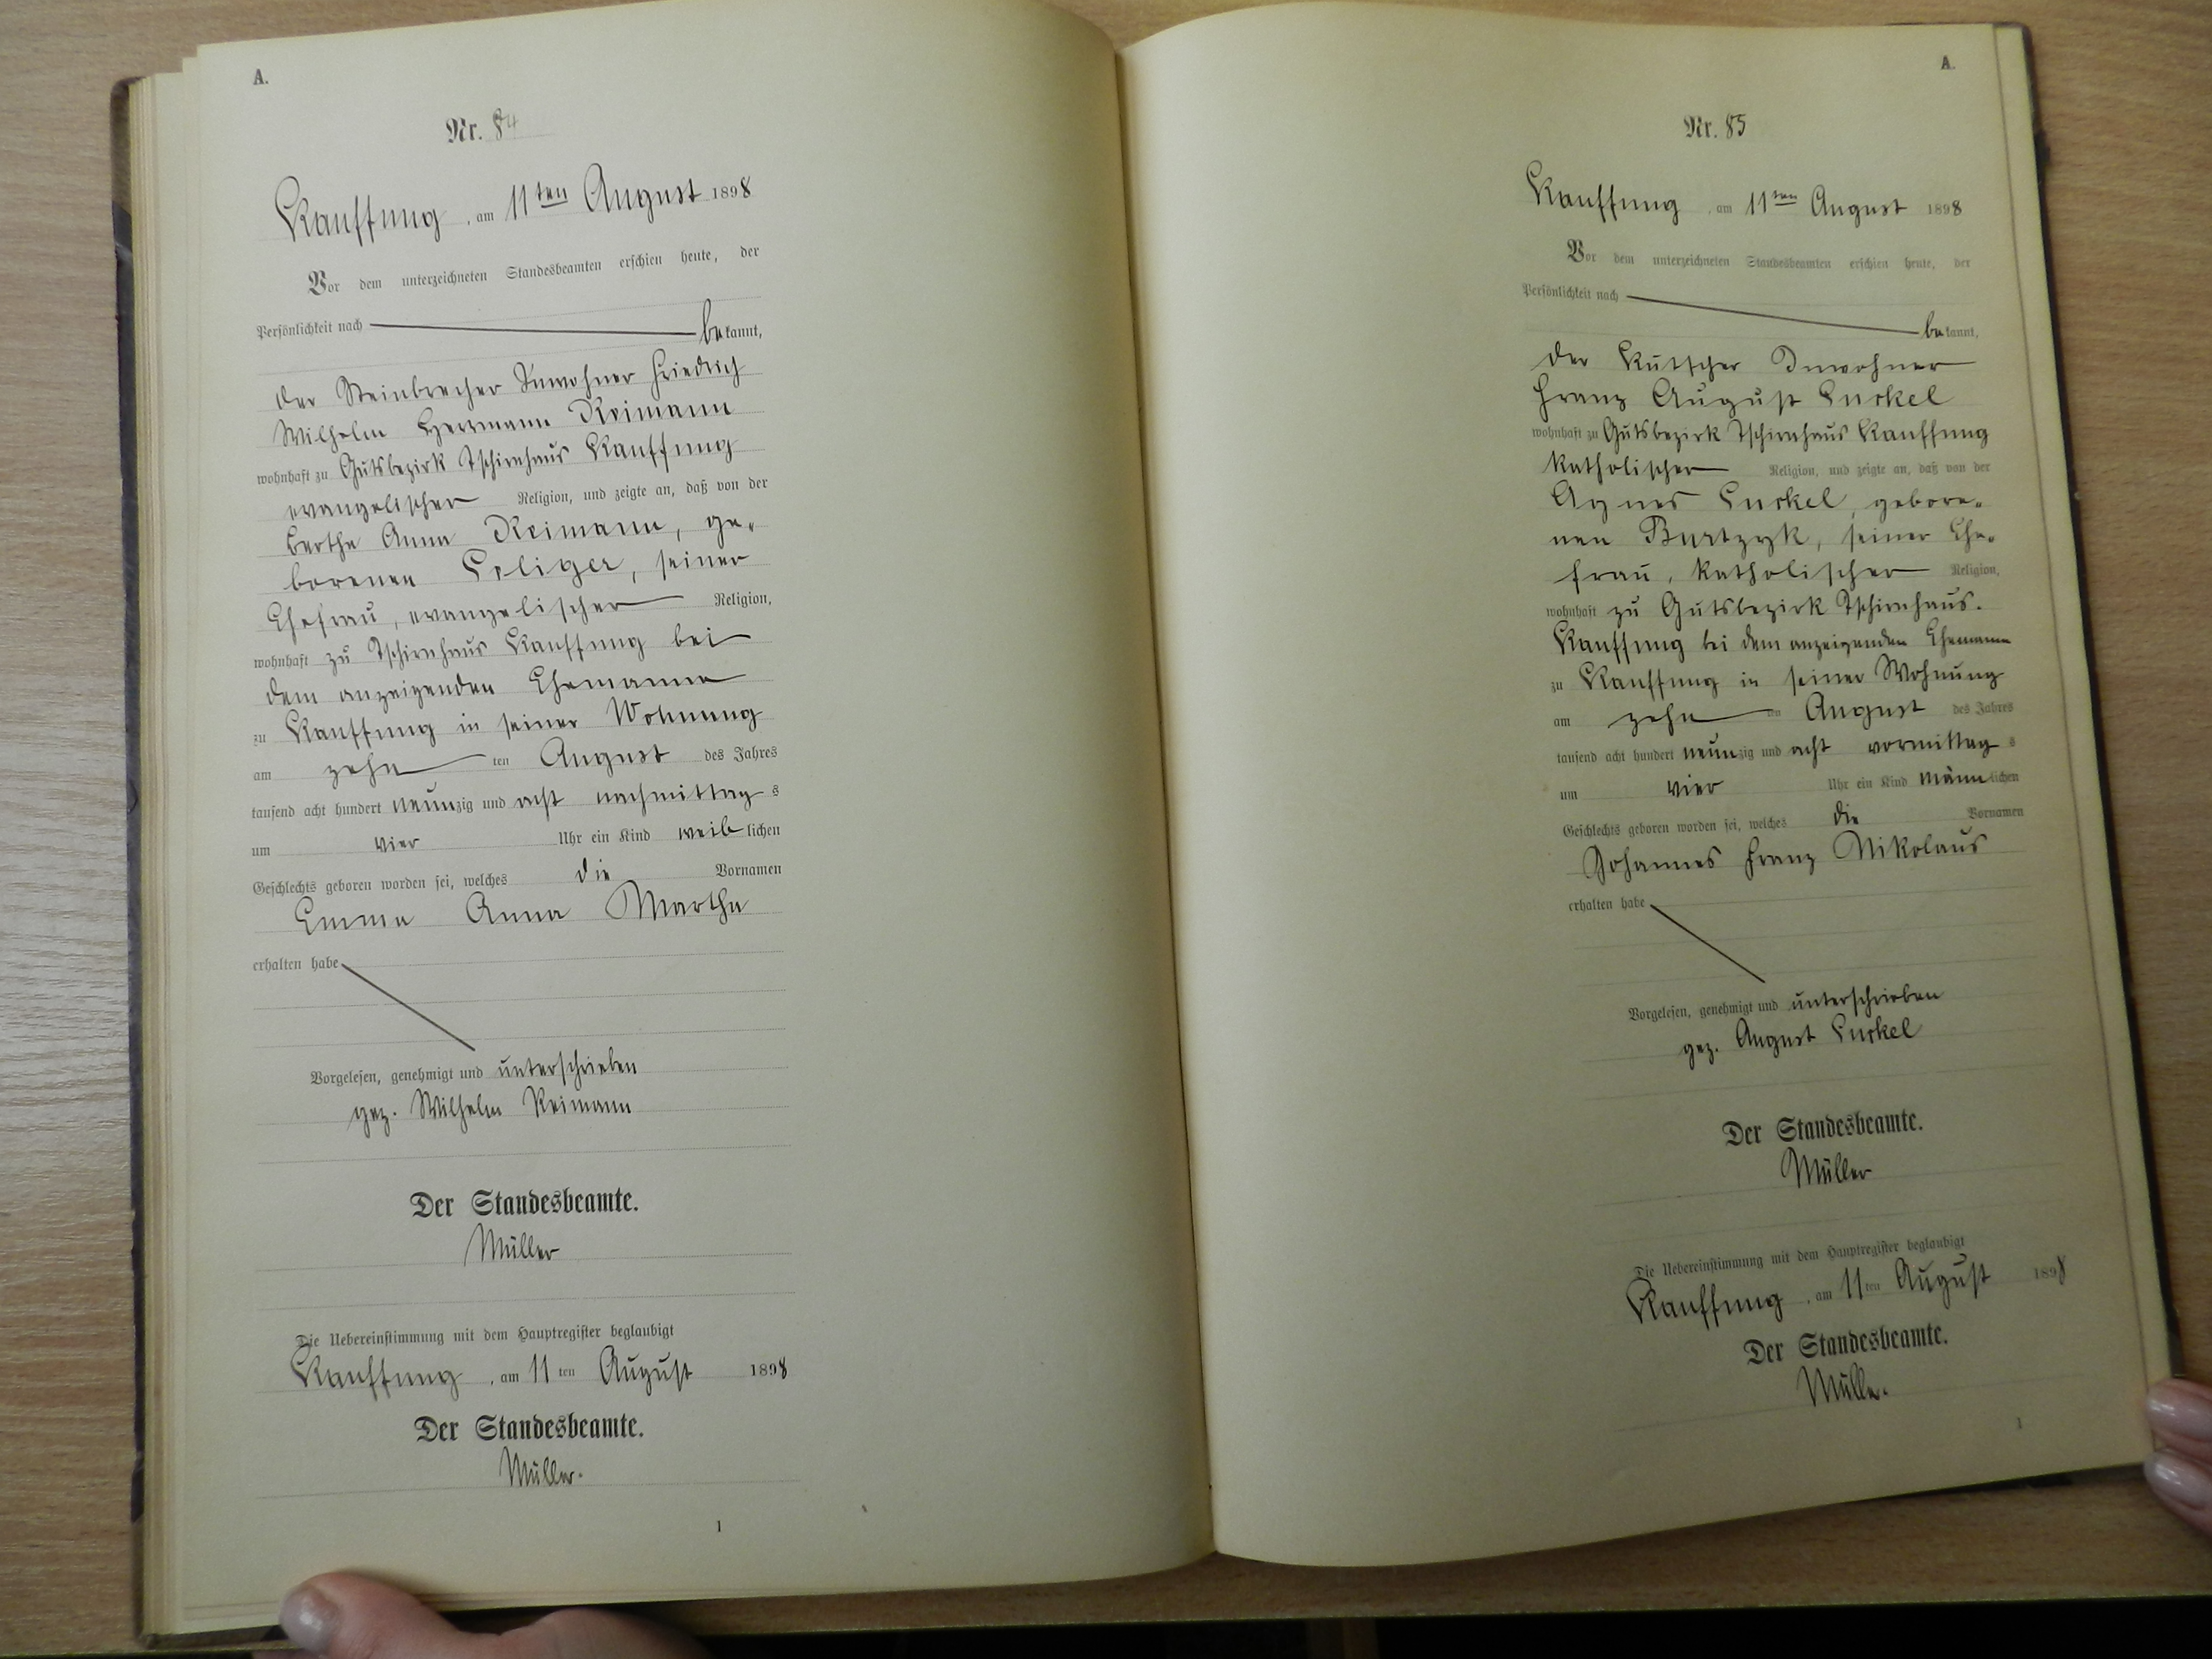 A.
Nr. 84
Kauffung, am 11ten August 1898
Vor dem unterzeichneten Standesbeamten erschien heute, der
Persönlichkeit nach
bekannt,
der Steinbrecher Inwohner Friedrich
Wilhelm Herrmann Reimann
wohnhaft zu Gutsbezirk Tschirnhaus Kauffung
evangelischer Religion, und zeigte an, daß von der
Berthe Anna Reimann, ge-
borenen Seliger, seiner
Ehefrau, evangelischer Religion,
wohnhaft zu Tschirnhaus Kauffung bei
dem anzeigenden Ehemanne
zu Kauffung in seiner Wohnung
am zehnten August des Jahres
tausend acht hundert neunzig und acht nachmittags
um vier Uhr ein Kind weiblichen
Geschlechts geboren worden sei, welches die Vornamen
Emma Anna Martha
erhalten habe
Vorgelesen, genehmigt und unterschrieben
gez. Wilhelm Reimann
Der Standesbeamte.
Müller
Die Uebereinstimmung mit dem Hauptregister beglaubigt
Kauffung, am 11ten August 1898
Der Standesbeamte.
Müller.
1
A.
Nr. 85
Kauffung, am 11ten August 1898
Vor dem unterzeichneten Standesbeamten erschien heute, der
Persönlichkeit nach
bekannt,
der Kutscher Inwohner
Franz August
wohnhaft zu Gutsbezirk Tschirnhaus Kauffung
katholischer Religion, und zeigte an, daß von der
Agnes gebore-
nen seiner Ehe-
frau, katholischer Religion,
wohnhaft zu Gutsbezirk Tschirnhaus.
Kauffung bei dem anzeigenden Ehemann
zu Kauffung in seiner Wohnung
am zehnten August des Jahres
tausend acht hundert neunzig und acht vormittags
um vier Uhr ein Kind männlichen
Geschlechts geboren worden sei, welches die Vornamen
Johannes Franz Nikolaus
erhalten habe
Vorgelesen, genehmigt und unterschrieben
gez. August
Der Standesbeamte.
Müller
Die Uebereinstimmung mit dem Hauptregister beglaubigt
Kauffung, am 11ten August 1898
Der Standesbeamte.
Müller.
1